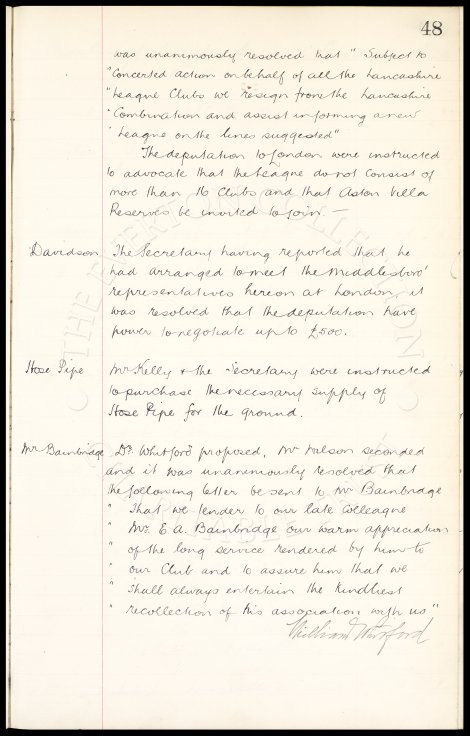 48
was unanimously resolved that " Subject to
"Concerted action on behalf of all the Lancashire
"League Clubs we resign from the Lancashire
"Combination and assist in forming a new
"League on the lines suggested"
The deputation to London were instructed
to advocate that the League do not consist of
more than 16 Clubs and that Aston Villa
Reserves be invited to join. —
Davidson The Secretary having reported that he
had arranged to meet the Middlesboro'
representatives hereon at London, it
was resolved that the deputation have
power to negotiate up to £500.
Hose Pipe Mr Kelly & the Secretary were instructed
to purchase the necessary supply of
Hose Pipe for the ground.
Mr Bainbridge Dr. Whitford proposed, Mr Wilson seconded
and it was unanimously resolved that
the following letter be sent to Mr Bainbridge
" That we tender to our late Colleague
" Mr. E A. Bainbridge our warm appreciation
" of the long service rendered by him to
" our Club and to assure him that we
" shall always entertain the kindliest
" recollection of his association with us"
William Whitford
THE EVERTON COLLECTION